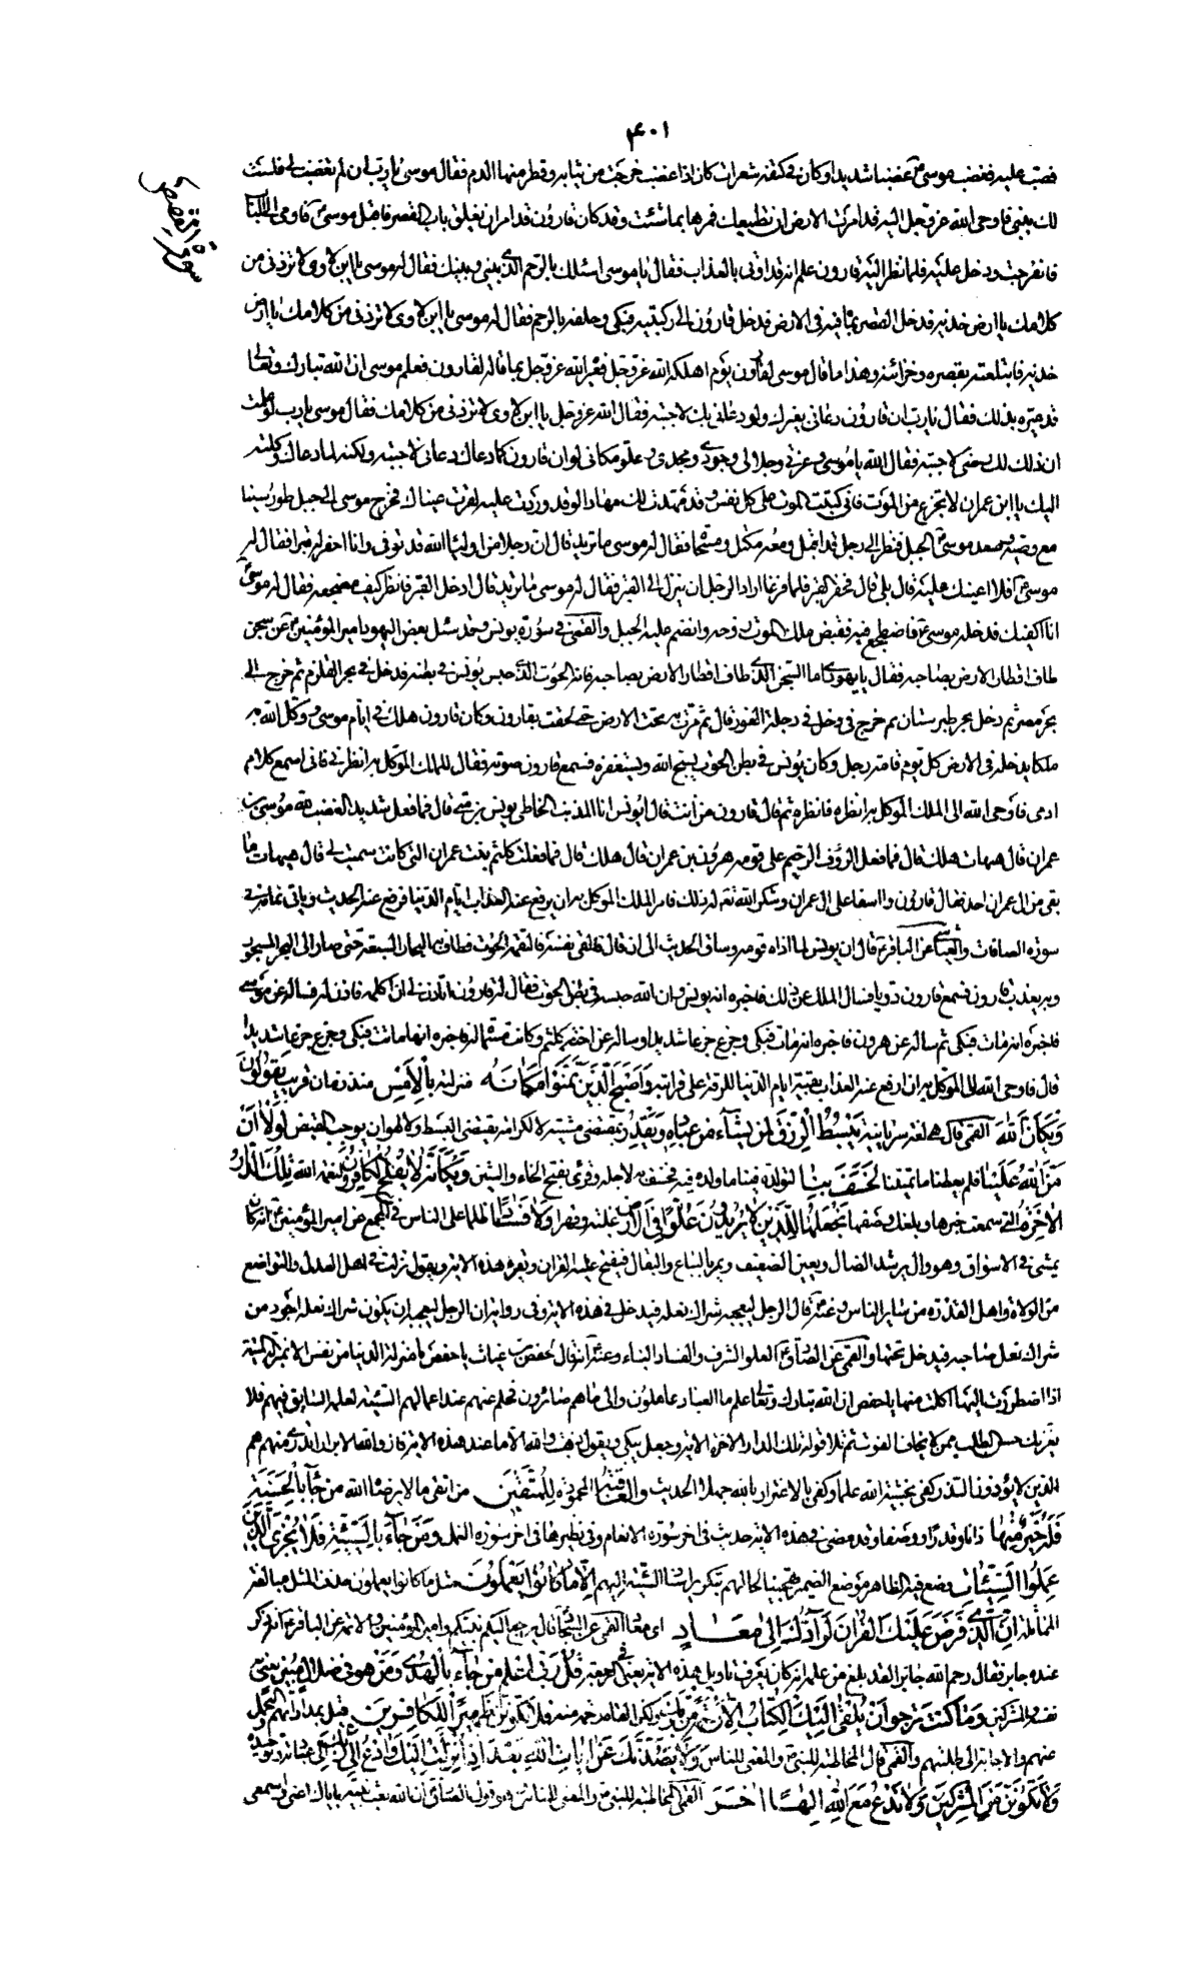 ۴۰۱
سورة القصص
فصب عليه فغضب موسى غضبا شديدا وكان في كتفه شعرات كان اذا غضب خرجت من ثيابه وقطر منها الدم فقال موسى يا رب ان لم تغضب لي فلست
لك بنبي فاوحى الله عز وجل اليه قد امرت الارض ان تطيعك فمرها بما شئت وقد كان قارون قد امر ان يغلق باب القصر فاقبل موسى فاومى الى الباب
فانفرجت ودخل عليه فلما نظر اليه قارون علم انه قد اوتى بالعذاب فقال يا موسى اسئلك بالرحم الذي بيني وبينك فقال له موسى يا ابن لاوى لا تزدني من
كلامك يا ارض خذيه فدخل القصر بما فيه في الارض فدخل قارون الى ركبتيه فبكى وحلفه بالرحم فقال له موسى يا ابن لاوى لا تزدني من كلامك يا ارض
خذيه فابتلعته بقصره وخزائنه وهذا ما قال موسى لقارون يوم اهلكه الله عز وجل فعيره الله عز وجل بما قاله لقارون فعلم موسى ان الله تبارك وتعالى
قد عيره بذلك فقال يا رب ان قارون دعاني بغيرك ولو دعاني بك لاجبته فقال الله عز وجل يا ابن لاوى لا تزدني من كلامك فقال موسى يا رب لو علمت
ان ذلك لك رضى لاجبته فقال الله يا موسى وعزتي وجلالي وجودي ومجدي وعلو مكاني لو ان قارون كما دعاك دعاني لاجبته ولكنه لما دعاك وكلته
اليك يا ابن عمران لا تجزع من الموت فاني كتبت الموت على كل نفس وقد مهدت لك مهادا لو قد وردت عليه لقرت عيناك فخرج موسى الى جبل طور سينا
مع وصيه وصعد موسى الجبل فنظر الى رجل قد اقبل ومعه مكتل ومسحاة فقال له موسى ما تريد قال ان رجلا من اولياء الله قد توفى وانا احفر له قبرا فقال له
موسى افلا اعينك عليه قال بلى قال فحفر القبر فلما فرغا اراد الرجل ان ينزل الى القبر فقال له موسى ما تريد قال ادخل القبر فانظر كيف مضجعه فقال له موسى
انا اكفيك فدخله موسى فاضطجع فيه فقبض ملك الموت روحه وانضم عليه الجبل والقمي في سورة يونس وقد سئل بعض اليهود امير المؤمنين عن سجن
طاف اقطار الارض بصاحبه فقال يا يهودي اما السجن الذي طاف اقطار الارض بصاحبه فانه الحوت الذي حبس يونس في بطنه فدخل في بحر القلزم ثم خرج الى
بحر مصر ثم دخل بحر طبرستان ثم خرج في دجلة الغور قال ثم مرت به تحت الارض حتى لحقت بقارون وكان قارون هلك في ايام موسى ووكل الله به
ملكا يدخله في الارض كل يوم قامة رجل وكان يونس في بطن الحوت يسبح الله ويستغفره فسمع قارون صوته فقال للملك الموكل به انظرني فاني اسمع كلام
ادمي فاوحى الله الى الملك الموكل به انظره فانظره ثم قال قارون من انت قال يونس انا المذنب الخاطي يونس بن متى قال فما فعل شديد الغضب لله موسى بن
عمران قال هيهات هلك قال فما فعل الرؤف الرحيم على قومه هرون بن عمران قال هلك قال فما فعلت كلثم بنت عمران التي كانت سميت لي قال هيهات ما
بقي من ال عمران احد فقال قارون وااسفا على ال عمران وشكر الله تعه له ذلك فامر الملك الموكل به ان يرفع عنه العذاب ايام الدنيا فرفع عنه الحديث وياتي تمامه في
سورة الصافات والعياشي عن الباقر قال ان يونس لما اذاه قومه وساق الحديث الى ان قال فالقى نفسه فالتقمه الحوت فطاف به البحار السبعة حتى صار الى البحر المسجور
وبه يعذب قارون فسمع قارون دويا فسال الملك عن ذلك فاخبره انه يونس وان الله حبسه في بطن الحوت فقال له قارون اتاذن لي ان اكلمه فاذن له فساله عن موسى
فاخبره انه مات فبكى ثم ساله عن هرون فاخبره انه مات فبكى وجزع جزعا شديدا وساله عن اخته كلثم وكانت مسماة له فاخبره انها ماتت فبكى وجزع جزعا شديدا
قال فاوحى الله الى الموكل به ان ارفع عنه العذاب بقية ايام الدنيا لرقته على قرابته وَاَصْبَحَ الَّذينَ تَمَنَّوْا مَكانَهُ منزلته بِالْاَمْسِ منذ زمان قريب يَقُولُونَ
وَيْكَاَنَّ اللّهَ القمي قال هي لغة سريانية يَبْسُطُ الرِّزْقَ لِمَنْ يَشآءُ مِنْ عِبادِه وَيَقْدِرُ بمقتضى مشيته لا لكرامة يقتضي البسط ولا لهوان يوجب القبض لَوْلا اَنْ
مَنَّ اللّهُ عَلَيْنا فلم يعطنا ما تمنينا لَخَسَفَ بِنا لتوليده فينا ما ولده فيه فخسف به لاجله وقرئ بفتح الخاء والسين وَيْكَاَنَّهُ لا يُفْلِحُ الْكافِرُونَ لنعمة الله تِلْكَ الدّارُ
الْاخِرَةُ التي سمعت خبرها وبلغك وصفها نَجْعَلُها لِلَّذينَ لا يُريدُونَ عُلُوًّا فِي الْاَرْضِ غلبة وقهرا وَلا فَسادًا ظلما على الناس في المجمع عن امير المؤمنين انه كان
يمشي في الاسواق وهو وال يرشد الضال ويعين الضعيف ويمر بالبياع والبقال فيفتح عليه القران ويقرء هذه الاية ويقول نزلت في اهل العدل والتواضع
من الولاة واهل القدرة من ساير الناس وعنه قال الرجل ليعجبه شراك نعله فيدخل في هذه الاية وفي رواية ان الرجل ليعجبه ان يكون شراك نعله اجود من
شراك نعل صاحبه فيدخل تحتها والقمي عن الصادق العلو الشرف والفساد البناء وعنه انه قال لحفص بن غياث يا حفص ما منزلة الدنيا من نفسي الا بمنزلة الميتة
اذا اضطررت اليها اكلت منها يا حفص ان الله تبارك وتعالى علم ما العباد عاملون والى ما هم صائرون فحلم عنهم عند اعمالهم السيئة لعلمه السابق فيهم فلا
يغرنك حسن الطلب ممن لا يخاف الفوت ثم تلا قوله تلك الدار الاخرة الاية وجعل يبكي ويقول ذهبت والله الاماني عند هذه الاية فاز والله الابرار اتدري من هم هم
الذين لا يؤذون الذر كفى بخشية الله علما وكفى بالاغترار بالله جهلا الحديث وَالْعاقِبَةُ المحمودة لِلْمُتَّقينَ من اتقى ما لا يرضاه الله مَنْ جآءَ بِالْحَسَنَةِ
فَلَهُ خَيْرٌ مِنْها ذاتا وقدرا ووصفا وقد مضى في هذه الاية حديث في اخر سورة الانعام وفي نظيرها في اخر سورة النمل وَمَنْ جآءَ بِالسَّيِّئَةِ فَلا يُجْزَى الَّذينَ
عَمِلُوا السَّيِّئاتِ وضع فيه الظاهر موضع الضمير تهجينا لحالهم بتكرير اسناد السيئة اليهم اِلّا ما كانُوا يَعْمَلُونَ مثل ما كانوا يعملون حذف المثل مبالغة في
المماثلة اِنَّ الَّذي فَرَضَ عَلَيْكَ الْقُرْانَ لَرآدُّكَ اِلى مَعادٍ اي معاد القمي عن السجاد قال يرجع اليكم نبيكم وامير المؤمنين والائمة وعن الباقر انه ذكر
عنده جابر فقال رحم الله جابرا لقد بلغ من علمه انه كان يعرف تاويل هذه الاية يعني الرجعة قُلْ رَبّي اَعْلَمُ مَنْ جآءَ بِالْهُدى وَمَنْ هُوَ في ضَلالٍ مُبينٍ يعني به
نفسه والمشركين وَما كُنْتَ تَرْجُوا اَنْ يُلْقى اِلَيْكَ الْكِتابُ اِلّا رَحْمَةً مِنْ رَبِّكَ ولكن القاه رحمة منه فَلا تَكُونَنَّ ظَهيرًا لِلْكافِرينَ قيل بمداراتهم والتحمل
عنهم والاجابة الى طلبتهم والقمي قال المخاطبة للنبي والمعنى للناس وَلا يَصُدُّنَّكَ عَنْ اياتِ اللّهِ بَعْدَ اِذْ اُنْزِلَتْ اِلَيْكَ وَادْعُ اِلى رَبِّكَ الى عبادته وتوحيده
وَلا تَكُونَنَّ مِنَ الْمُشْرِكينَ وَلا تَدْعُ مَعَ اللّهِ اِلهًا اخَرَ القمي المخاطبة للنبي والمعنى للناس وهو قول الصادق ان الله بعث نبيه باياك اعني واسمعي